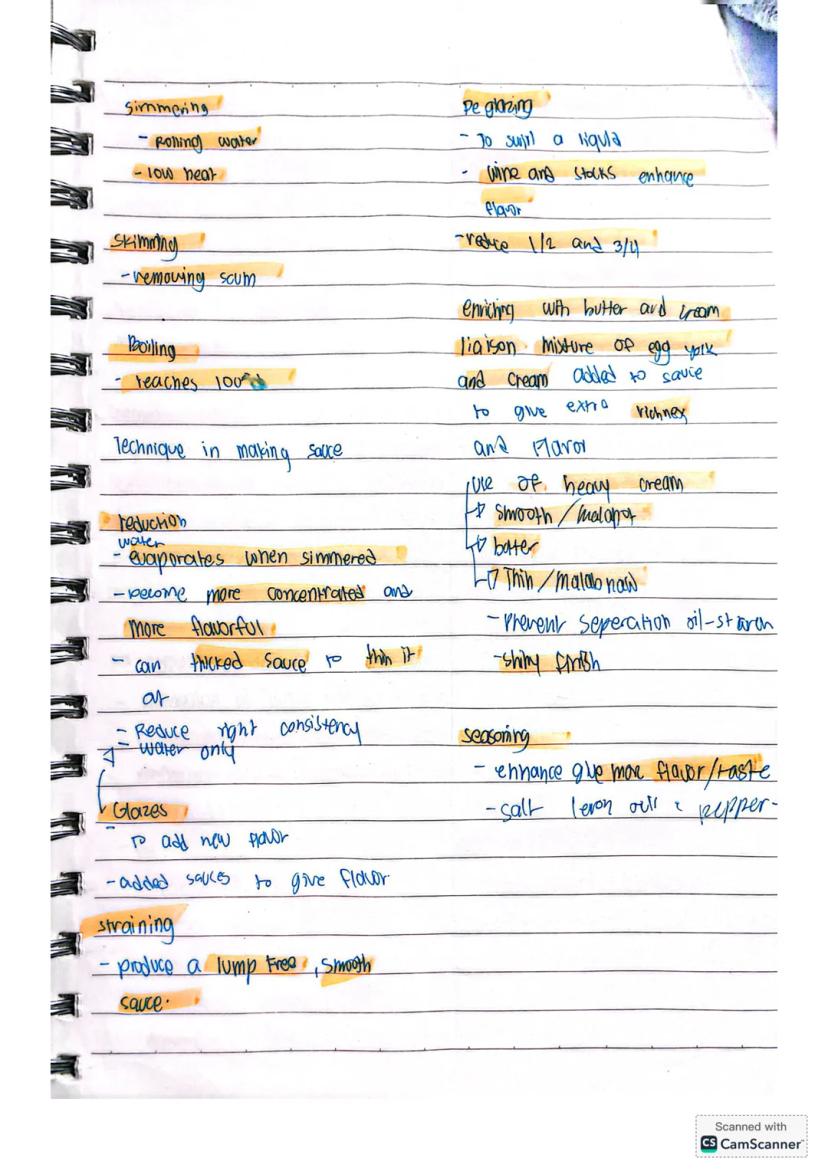 simmering
- Rolling water
- low heat
skimming
- removing scum
Boiling
- reaches 100°
Technique in making sauce
reduction
water
- evaporates when simmered
- become more concentrated and
more flavorful
- can thicked sauce to thin it
- Reduce right consistency
- water only
Glazes
- To add new flavor
- added sauces to give flavor
straining
- produce a lump free, smooth
sauce.
Deglazing
- To swirl a liquid
- wine and stocks enhance
flavor
- reduce 1/2 and 3/4
enriching with butter and cream
liaison mixture of egg yolk
and cream added to sauce
to give extra richnex
and flavor
use of heavy cream
smooth / malapot
batter
Thin / malabnaw
- Prevent seperation oil-starch
- shiny finish
seasoning
- enhance give more flavor/taste
- salt & pepper -
Scanned with
CS CamScanner